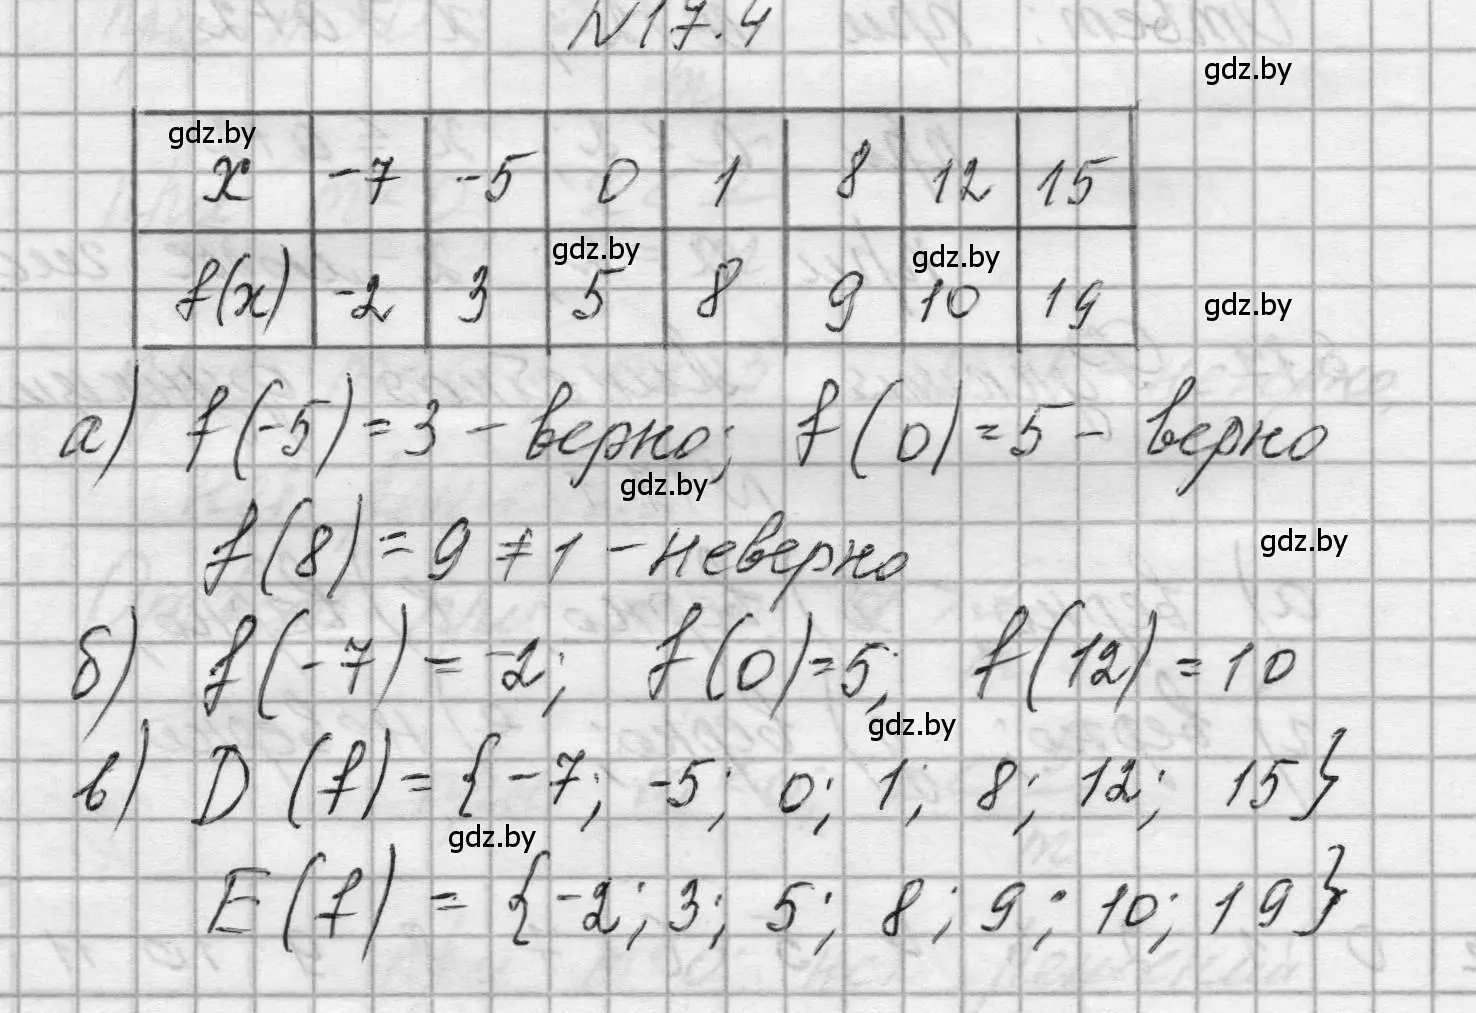 N17.4
gdz.by
gdz.by
x -7 -5 0 1 8 12 15
gdz.by gdz.by
f(x) -2 3 5 8 9 10 19
gdz.by
а) f(-5) = 3 - верно; f(0) = 5 - верно
gdz.by
f(8) = 9 ≠ 1 - неверно
gdz.by
б) f(-7) = -2; f(0) = 5; f(12) = 10
gdz.by
в) D(f) = {-7; -5; 0; 1; 8; 12; 15}
gdz.by
E(f) = {-2; 3; 5; 8; 9; 10; 19}